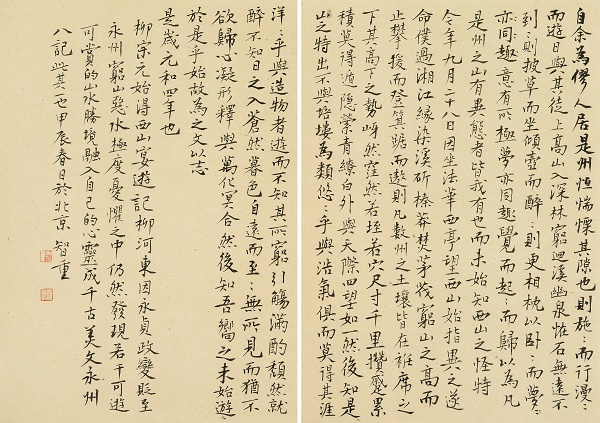 自余為僇人居是州恒惴慄其隙也則施:而行漫:
而遊日與其徒上高山入深林窮迴溪幽泉怪石無遠不
到:則披草而坐傾壺而醉則更相枕以卧:而夢:
亦同趣意有所極夢亦同趣覺而起:而歸以為凡
是州之山有異態者皆我有也而未始知西山之怪特
今年九月二十八日因坐法華西亭望西山始指異之遂
命僕過湘江緣染溪斫榛莽焚茅茷窮山之高而
止攀援而登箕踞而遨則凡數州之土壤皆在衽席之
下其高下之勢岈然窪然若垤若穴尺寸千里攢蹙累
積莫得遁隱縈青繚白外與天際四望如一然後知是
山之特出不與培塿為類悠:乎與浩氣俱而莫得其涯
洋:乎與造物者遊而不知其所窮引觴滿酌頹然就
醉不知日之入蒼然暮色自遠而至:無所見而猶不
欲歸心凝形釋與萬化冥合然後知吾嚮之未始遊:
於是乎始故為之文以志
是歲元和四年也
柳宗元始得西山宴遊記柳河東因永貞政變貶至
永州窮山惡水極度憂懼之中仍然發現若干可遊
可賞的山水勝境融入自己的心靈成千古美文永州
八記此其一也甲辰春日於北京 智重